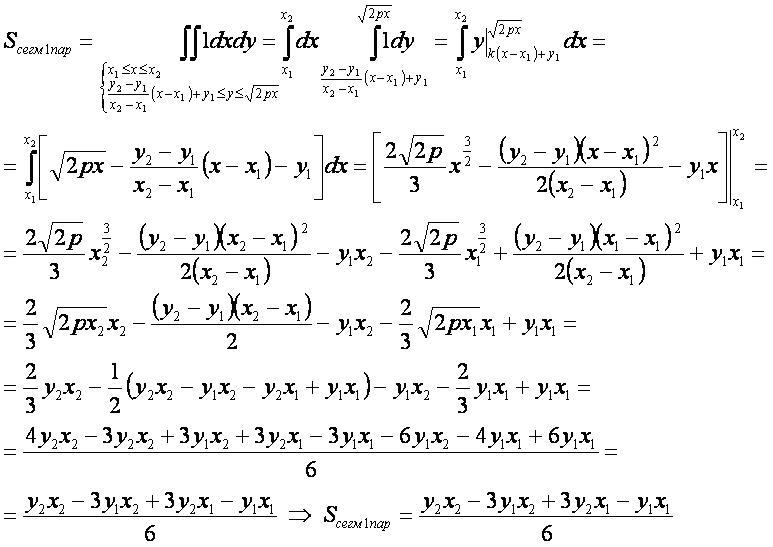 S_{сегм1пар} = \iint\limits_{\begin{cases} x_1 \le x \le x_2 \\ \frac{y_2 - y_1}{x_2 - x_1}(x - x_1) + y_1 \le y \le \sqrt{2px} \end{cases}} 1dxdy = \int\limits_{x_1}^{x_2} dx \int\limits_{\frac{y_2 - y_1}{x_2 - x_1}(x - x_1) + y_1}^{\sqrt{2px}} 1dy = \int\limits_{x_1}^{x_2} y \Big|_{k(x - x_1) + y_1}^{\sqrt{2px}} dx =
= \int\limits_{x_1}^{x_2} \left[ \sqrt{2px} - \frac{y_2 - y_1}{x_2 - x_1}(x - x_1) - y_1 \right] dx = \left[ \frac{2\sqrt{2p}}{3} x^{\frac{3}{2}} - \frac{(y_2 - y_1)(x - x_1)^2}{2(x_2 - x_1)} - y_1 x \right] \Bigg|_{x_1}^{x_2} =
= \frac{2\sqrt{2p}}{3} x_2^{\frac{3}{2}} - \frac{(y_2 - y_1)(x_2 - x_1)^2}{2(x_2 - x_1)} - y_1 x_2 - \frac{2\sqrt{2p}}{3} x_1^{\frac{3}{2}} + \frac{(y_2 - y_1)(x_1 - x_1)^2}{2(x_2 - x_1)} + y_1 x_1 =
= \frac{2}{3} \sqrt{2px_2} x_2 - \frac{(y_2 - y_1)(x_2 - x_1)}{2} - y_1 x_2 - \frac{2}{3} \sqrt{2px_1} x_1 + y_1 x_1 =
= \frac{2}{3} y_2 x_2 - \frac{1}{2} (y_2 x_2 - y_1 x_2 - y_2 x_1 + y_1 x_1) - y_1 x_2 - \frac{2}{3} y_1 x_1 + y_1 x_1 =
= \frac{4y_2 x_2 - 3y_2 x_2 + 3y_1 x_2 + 3y_2 x_1 - 3y_1 x_1 - 6y_1 x_2 - 4y_1 x_1 + 6y_1 x_1}{6} =
= \frac{y_2 x_2 - 3y_1 x_2 + 3y_2 x_1 - y_1 x_1}{6} \Rightarrow S_{сегм1пар} = \frac{y_2 x_2 - 3y_1 x_2 + 3y_2 x_1 - y_1 x_1}{6}